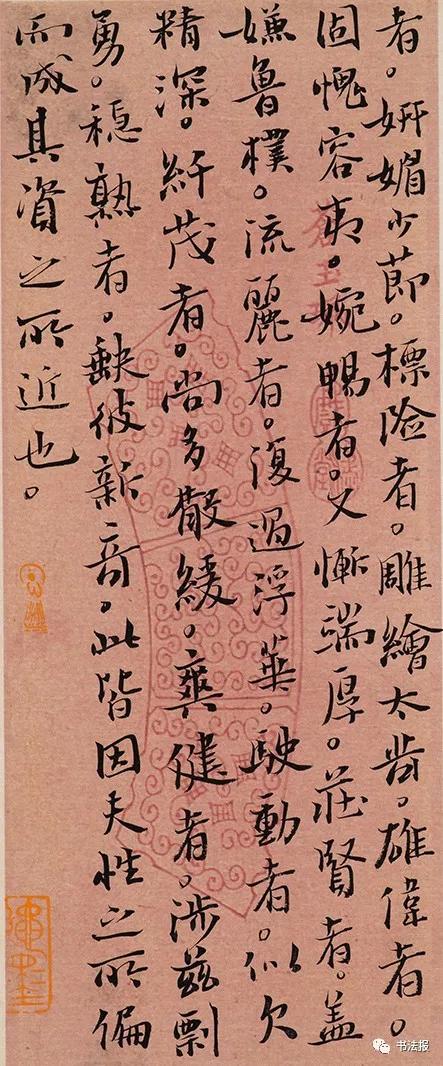 者。妍媚少節。標险者。雕繪太苛。雄偉者。
固愧容夷。婉暢者。又慚端厚。莊賢者。盖
嫌魯樸。流麗者。復過浮華。駛動者。似欠
精深。纤茂者。尚多散緩。爽健者。涉兹剽
勇。穏熟者。缺彼新奇。此皆因夫性之所偏
而成其資之所近也。
书法报